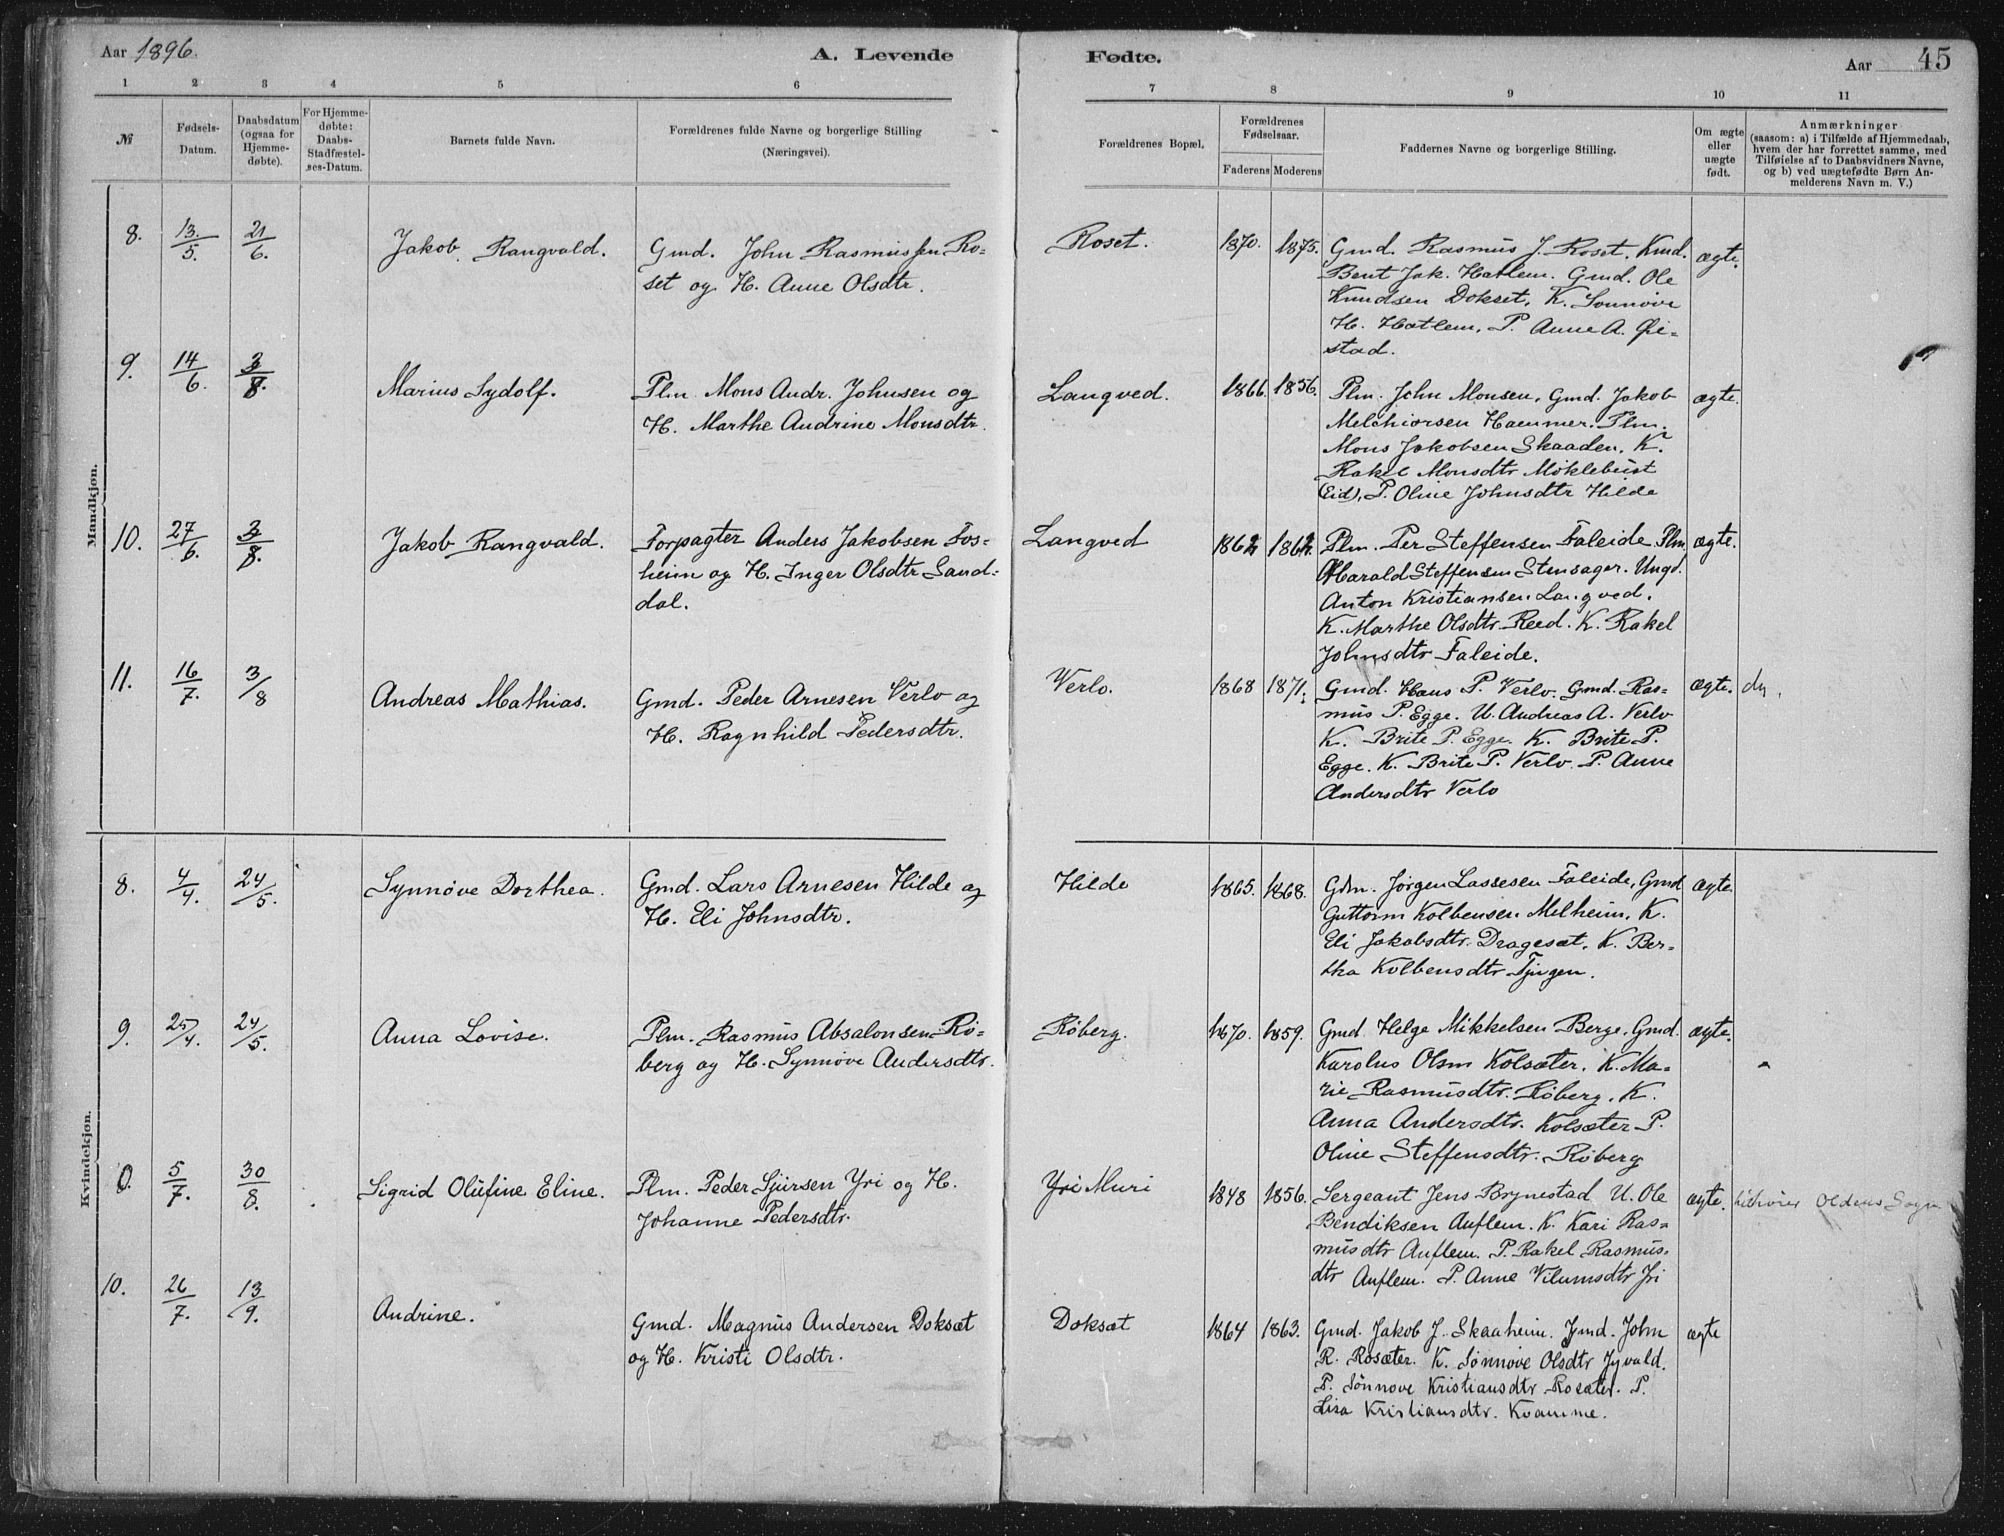 Aar 1896. A. Levende Fødte. Aar 45
1 2 3 4 5 6 7 8 9 10 11
№
Fødsels-
Datum.
Daabsdatum
(ogsaa for
Hjemme-
døbte).
For Hjemme-
døbte:
Daabs-
Stadfæstel-
ses-Datum.
Barnets fulde Navn.
Forældrenes fulde Navne og borgerlige Stilling
(Næringsvei).
Forældrenes Bopæl.
Forældrenes
Fødselsaar.
Faderens Moderens
Faddernes Navne og borgerlige Stilling.
Om ægte
eller
uægte
født.
Anmærkninger
(saasom: a) i Tilfælde af Hjemmedaab,
hvem der har forrettet samme, med
Tilføielse af to Daabsvidners Navne,
og b) ved uægtefødte Børn An-
melderens Navn m. V.)
Mandkjøn.
8. 13/5. 21/6. Jakob Rangvald.
Gmd. John Rasmussen Ro-
set og H. Anne Olsdtr.
Roset. 1870. 1875.
Gmd. Rasmus J. Roset. Kmd.
Bent Jak. Hatlem. Gmd. Ole
Knudsen Dokset, K. Sonnøve
H. Hatlem, P. Anne A. Øi-
stad.
ægte.
9. 14/6. 3/8. Marius Sydolf.
Plm. Mons Andr. Johnsen og
H. Marthe Andrine Monsdtr.
Langved. 1866. 1856.
Plm. John Monsen, Gmd. Jakob
Melchiorsen Hammer. Plm.
Mons Jakobsen Skaaden. K.
Rakel Monsdtr Møklebust
(Eid), P. Oline Johnsdtr Hilde
ægte.
10. 27/6. 3/8. Jakob Rangvald.
Forpagter Anders Jakobsen Fos-
heim og H. Inger Olsdtr Sand-
dal.
Langved 1862 1862.
Plm. Per Steffensen Faleide. Plm.
Harald Steffensen Stensager. Ungd.
Anton Kristiansen Langved.
K. Marthe Olsdtr. Reed. K. Rakel
Johnsdtr Faleide.
ægte.
11. 16/7. 3/8 Andreas Mathias.
Gmd. Peder Arnesen Verlo og
H. Ragnhild Pedersdtr.
Verlo. 1868 1871.
Gmd. Hans P. Verlo. Gmd. Ras-
mus P. Egge. U. Andreas A. Verlo
K. Brite P. Egge. K. Brite P.
Egge. K. Brite P. Verlo. P. Anne
Andersdtr Verlo
ægte.
Kvindekjøn.
8. 4/4. 24/5. Synnøve Dorthea.
Gmd. Lars Arnesen Hilde og
H. Eli Johnsdtr.
Hilde 1865. 1868.
Gdm. Jørgen Lassesen Faleide, Gmd
Guttorm Kolbensen Melheim. K.
Eli Jakobsdtr. Dragesæt. K. Ber-
tha Kolbensdtr Tjugen.
ægte.
9. 25/4. 24/5. Anna Lovise.
Plm. Rasmus Absalonsen Rø-
berg og H. Synnøve Andersdtr.
Røberg. 1870. 1859.
Gmd. Helge Mikkelsen Berge, Gmd.
Karolus Olsen Kolsæter. K. Ma-
rie Rasmusdtr. Røberg. K.
Anna Andersdtr. Kolsæter P.
Oline Steffensdtr. Røberg
ægte.
0. 5/7. 30/8. Sigrid Olufine Eline.
Plm. Peder Sjursen Yri og H.
Johanne Pedersdtr.
Yri Muri 1848 1856.
Sergeant Jens Brynestad U. Ole
Bendiksen Auflem. K. Kari Ras-
musdtr Auflem. P. Rakel Rasmus-
dtr Auflem. P. Anne Vilumsdtr Yri
ægte. tilhører Oldens Sogn
10. 26/7. 13/9. Andrine.
Gmd. Magnus Andersen Doksæt
og H. Kristi Olsdtr.
Doksæt 1864 1863.
Gmd. Jakob J. Skaaheim. Gmd. John
R. Rosæter. K. Sønnøve Olsdtr Jyvald.
P. Sønnove Kristiansdtr Rosæter. P.
Lisa Kristiansdtr. Kvamme.
ægte